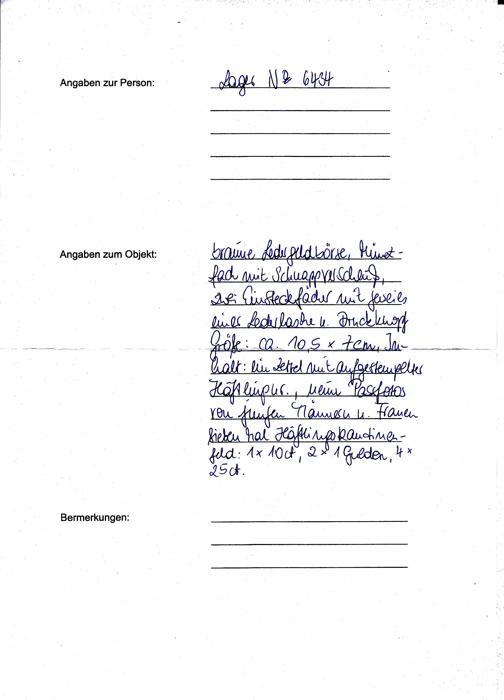 Angaben zur Person:
Lager № 6434
Angaben zum Objekt:
braune Ledergeldbörse, Münz-
fach mit Schnappverschluß,
zwei Einsteckfächer mit jeweils
einer Lederlasche u. Druckknopf
Größe: ca. 10,5 x 7cm, In-
halt: ein Zettel mit aufgestempelter
Häftlingsnr., neun Passfotos
von jungen Männern u. Frauen
sieben mal Häftlingskantinen-
geld: 1x 10ct, 2x 1 Gulden, 4x
25ct.
Bermerkungen: